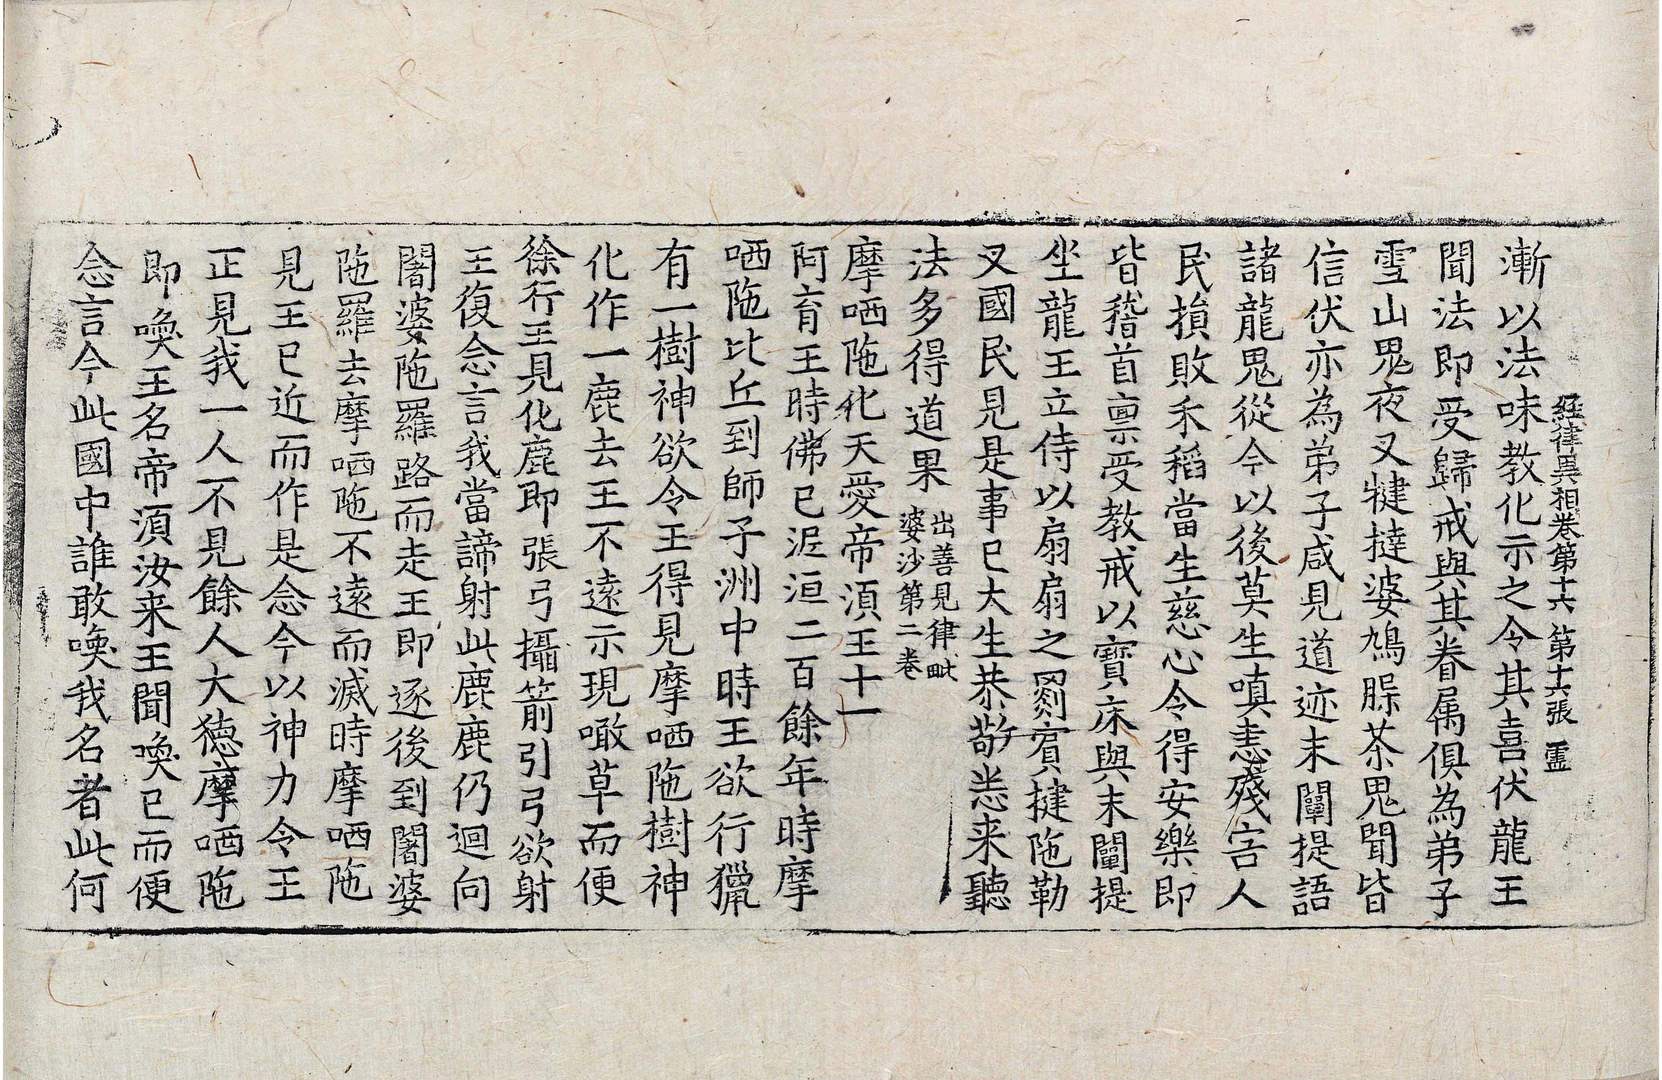 經律異相卷第十六 第十六張 靈
漸以法味教化示之令其喜伏龍王
聞法即受歸戒與其眷属俱為弟子
雪山鬼夜叉犍撻婆鳩脲茶鬼聞皆
信伏亦為弟子咸見道迹末闡提語
諸龍鬼從今以後莫生嗔恚殘害人
民損敗禾稻當生慈心令得安樂即
皆稽首禀受教戒以寶床與末闡提
坐龍王立侍以扇扇之罽賓揵陁勒
叉國民見是事已大生恭敬悉来聽
法多得道果 出善見律毗
婆沙第二卷
摩哂陁化天愛帝湏王十一
阿育王時佛已泥洹二百餘年時摩
哂陁比丘到師子洲中時王欲行獵
有一樹神欲令王得見摩哂陁樹神
化作一鹿去王不遠示現噉草而便
徐行王見化鹿即張弓攝箭引弓欲射
王復念言我當諦射此鹿鹿仍迴向
闍婆陁羅路而走王即逐後到闍婆
陁羅去摩哂陁不遠而滅時摩哂陁
見王已近而作是念今以神力令王
正見我一人不見餘人大徳摩哂陁
即喚王名帝湏汝来王聞喚已而便
念言今此國中誰敢喚我名者此何